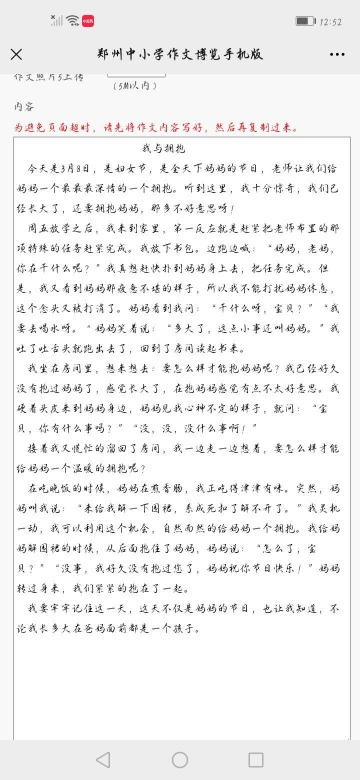 12:52
郑州中小学作文博览手机版
作文照片3上传
(5M以内)
内容
为避免页面超时，请先将作文内容写好，然后再复制过来。
我与拥抱
今天是3月8日，是妇女节，是全天下妈妈的节日，老师让我们给
妈妈一个最最最深情的一个拥抱。听到这里，我十分惊奇，我们已
经长大了，还要拥抱妈妈，那多不好意思呀！
周五放学之后，我来到家里，第一反在就是赶紧把老师布置的那
项特殊的任务赶紧完成。我放下书包，边跑边喊：“妈妈，老妈，
你在干什么呢？”我真想赶快扑到妈妈身上去，把任务完成。但
是，我又看到妈妈那疲惫不堪的样子，所以我不能打扰妈妈休息，
这个念头又被打消了。妈妈看到我问：“干什么呀，宝贝？”“我
要去喝水呀。“妈妈笑着说：“多大了，这点小事还叫妈妈。”我
吐了吐舌头就跑出去了，回到了房间读起书来。
我坐在房间里，想来想去：要怎么样才能抱妈妈呢？我已经好久
没有抱过妈妈了，感觉长大了，在抱妈妈感觉有点不太好意思。我
硬着头皮来到妈妈身边，妈妈见我心神不定的样子，就问：“宝
贝，你有什么事吗？”“没，没，没什么事啊！”
接着我又慌忙的溜回了房间，我一边走一边想着，要怎么样才能
给妈妈一个温暖的拥抱呢？
在吃晚饭的时候，妈妈在煎香肠，我正吃得津津有味。突然，妈
妈叫我说：“来给我解一下围裙，系成死扣了解不开了。”我灵机
一动，我可以利用这个机会，自然而然的给妈妈一个拥抱。我给妈
妈解围裙的时候，从后面抱住了妈妈，妈妈说：“怎么了，宝
贝？”“没事，我好久没有抱过您了，妈妈祝你节日快乐！”妈妈
转过身来，我们紧紧的抱在了一起。
我要牢牢记住这一天，这天不仅是妈妈的节日，也让我知道，不
论我长多大在爸妈面前都是一个孩子。